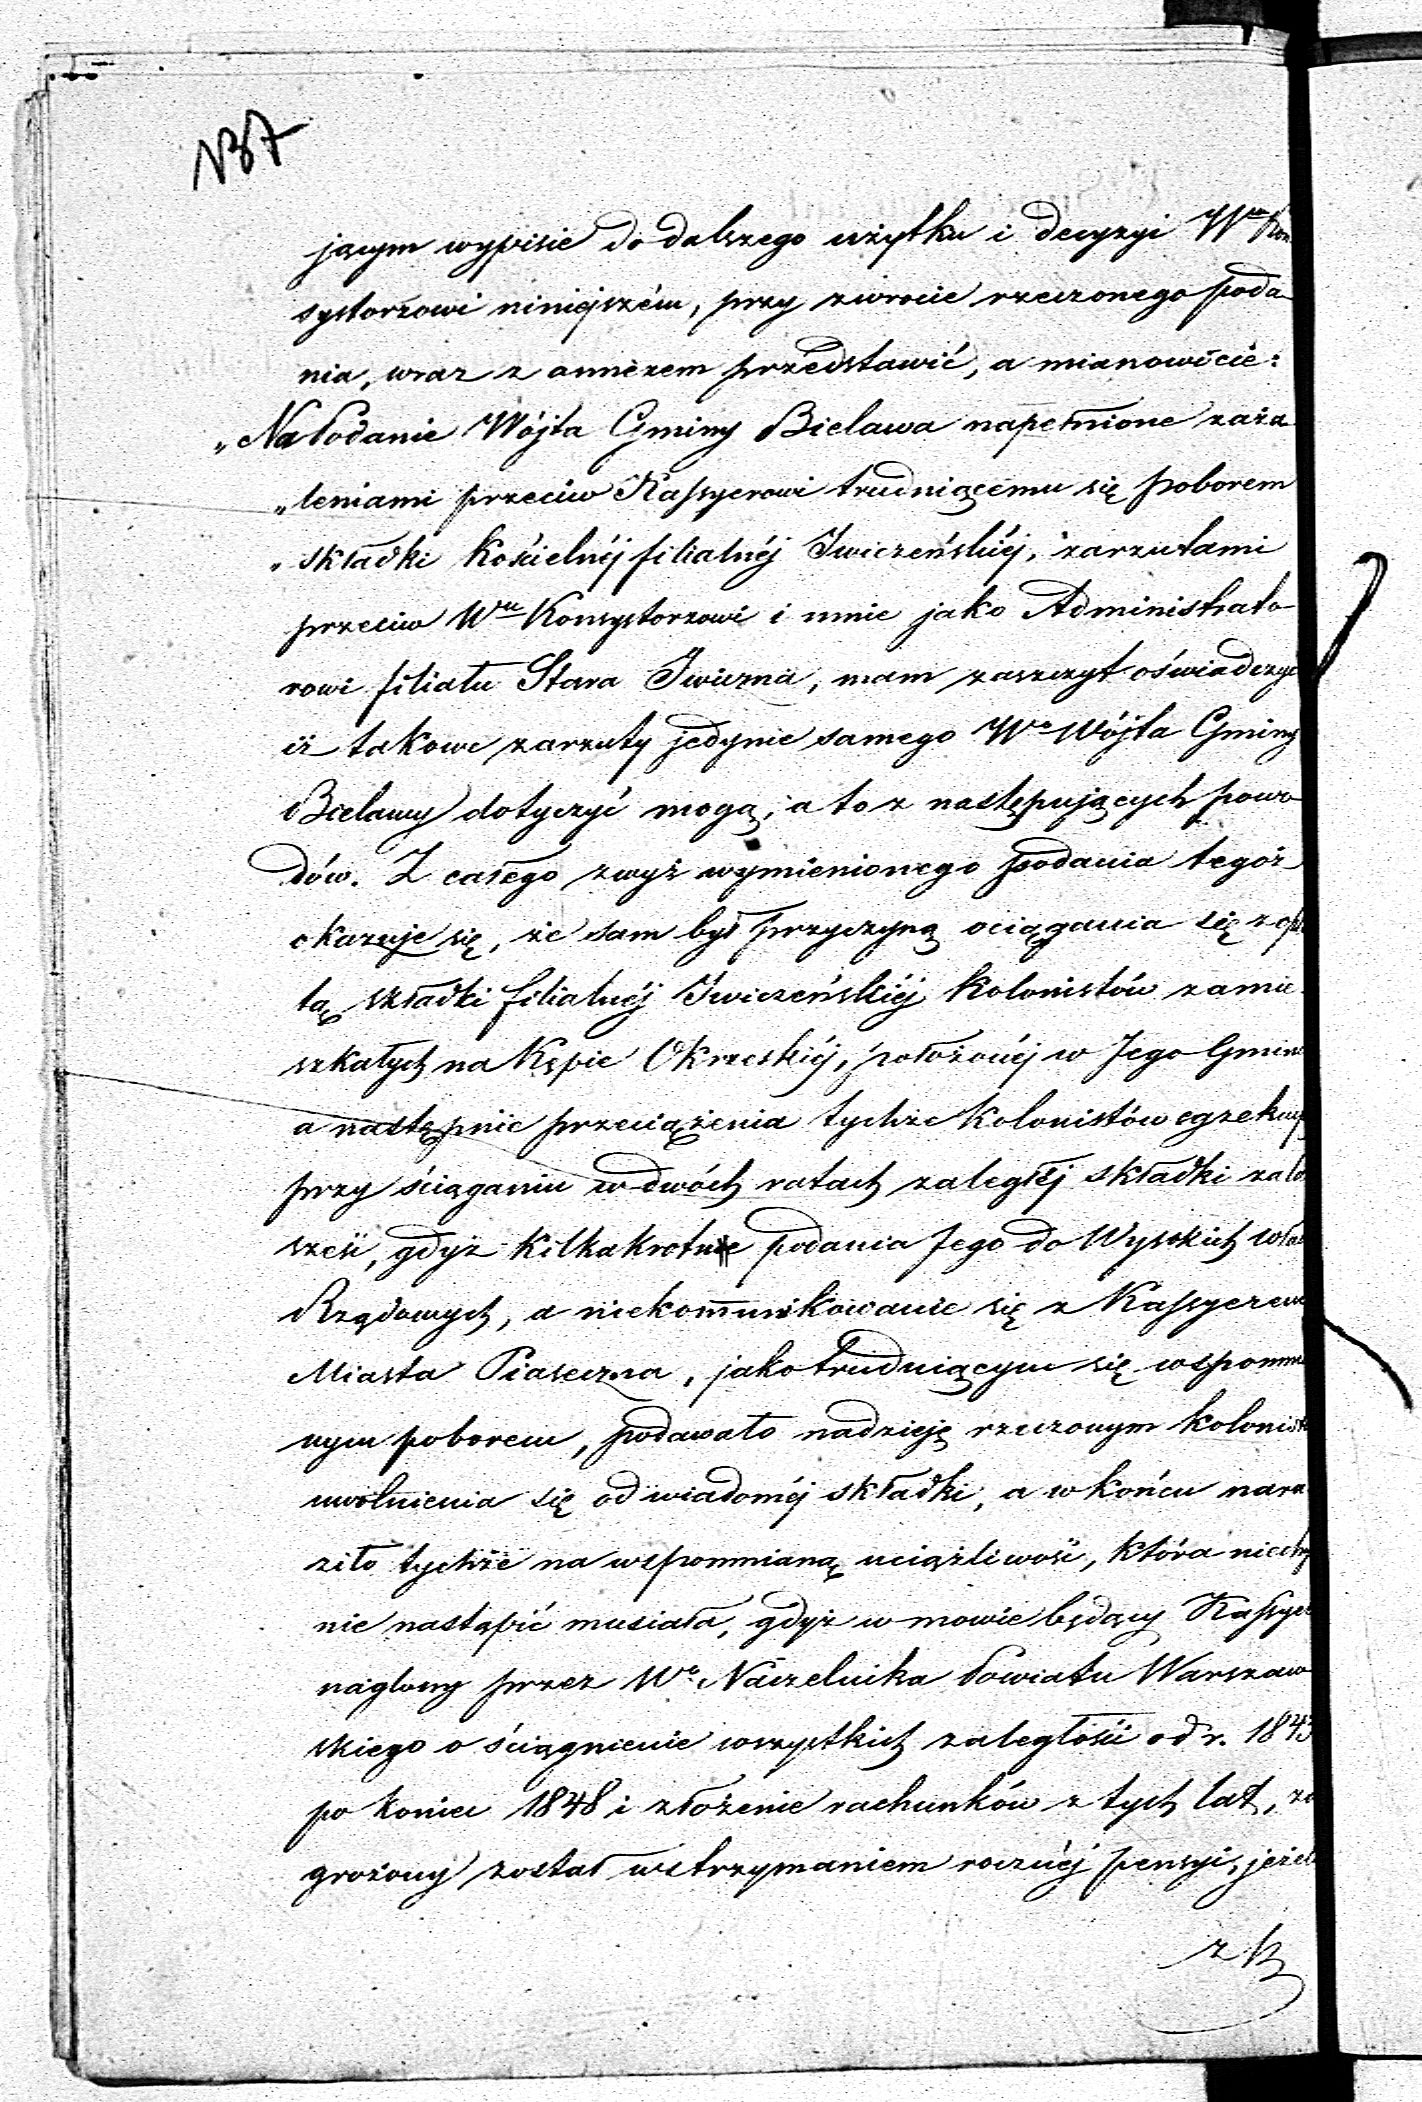 137
jącym wypisie do dalszego użytku i decyzyi Wmu Kon
systorzowi niniejszém, przy zwrocie rzeczonego poda
nia, wraz z annexem przédstawić, a mianowicie:
„Na Podanie Wójta Gminy Bielawa napełnione zaża
„leniami przeciw Kassyerowi trudniącému się poborem
„składki Kościelnéj filialnéj Iwiczeńskiéj, zarzutami
przeciw Wmu Konsystorzowi i mnie jako Administrato-
rowi filiału Stara Iwiczna, mam zaszczyt oświadczyć
iż takowe zarzuty jedynie samego Wo Wójta Gminy
Bielawy dotyczyć mogą, a to z następujących powo
dów. Z całego zwyż wymienionego podania tegóż
okazuje się, że sam był przyczyną ociągania się z opł
tą składki filialnéj Iwiczeńskiéj Kolonistów zamie
szkałych na Kępie Okrzeskiéj, położonéj w Jego Gminie
a następnie przeciążenia tychże Kolonistów egzekucyą
przy ściąganiu w dwóch ratach zaległéj składki za lat
sześć, gdyż kilkakrotne podania Jego do Wysokich Wład
Rządowych, a niekommunikowanie się z Kassyerem
Miasta Piaseczna, jako trudniącym się wspomnia
nym poborem, podawało nadzieję rzeczonym kolonist
uwolnienia się od wiadoméj składki, a w końcu nara
ziło tychże na wspomnianą uciążliwość, która niechy
nie nastąpić musiała, gdyż w mowie będący Kassyer
naglony przez Wo Naczelnika Powiatu Warszaw
skiego o ściągnienie wszystkich zaległości od r. 1843
po koniec 1848 i złożenie rachunków z tych lat, za
grożony został wstrzymaniem rocznéj pensyi, jeżeli